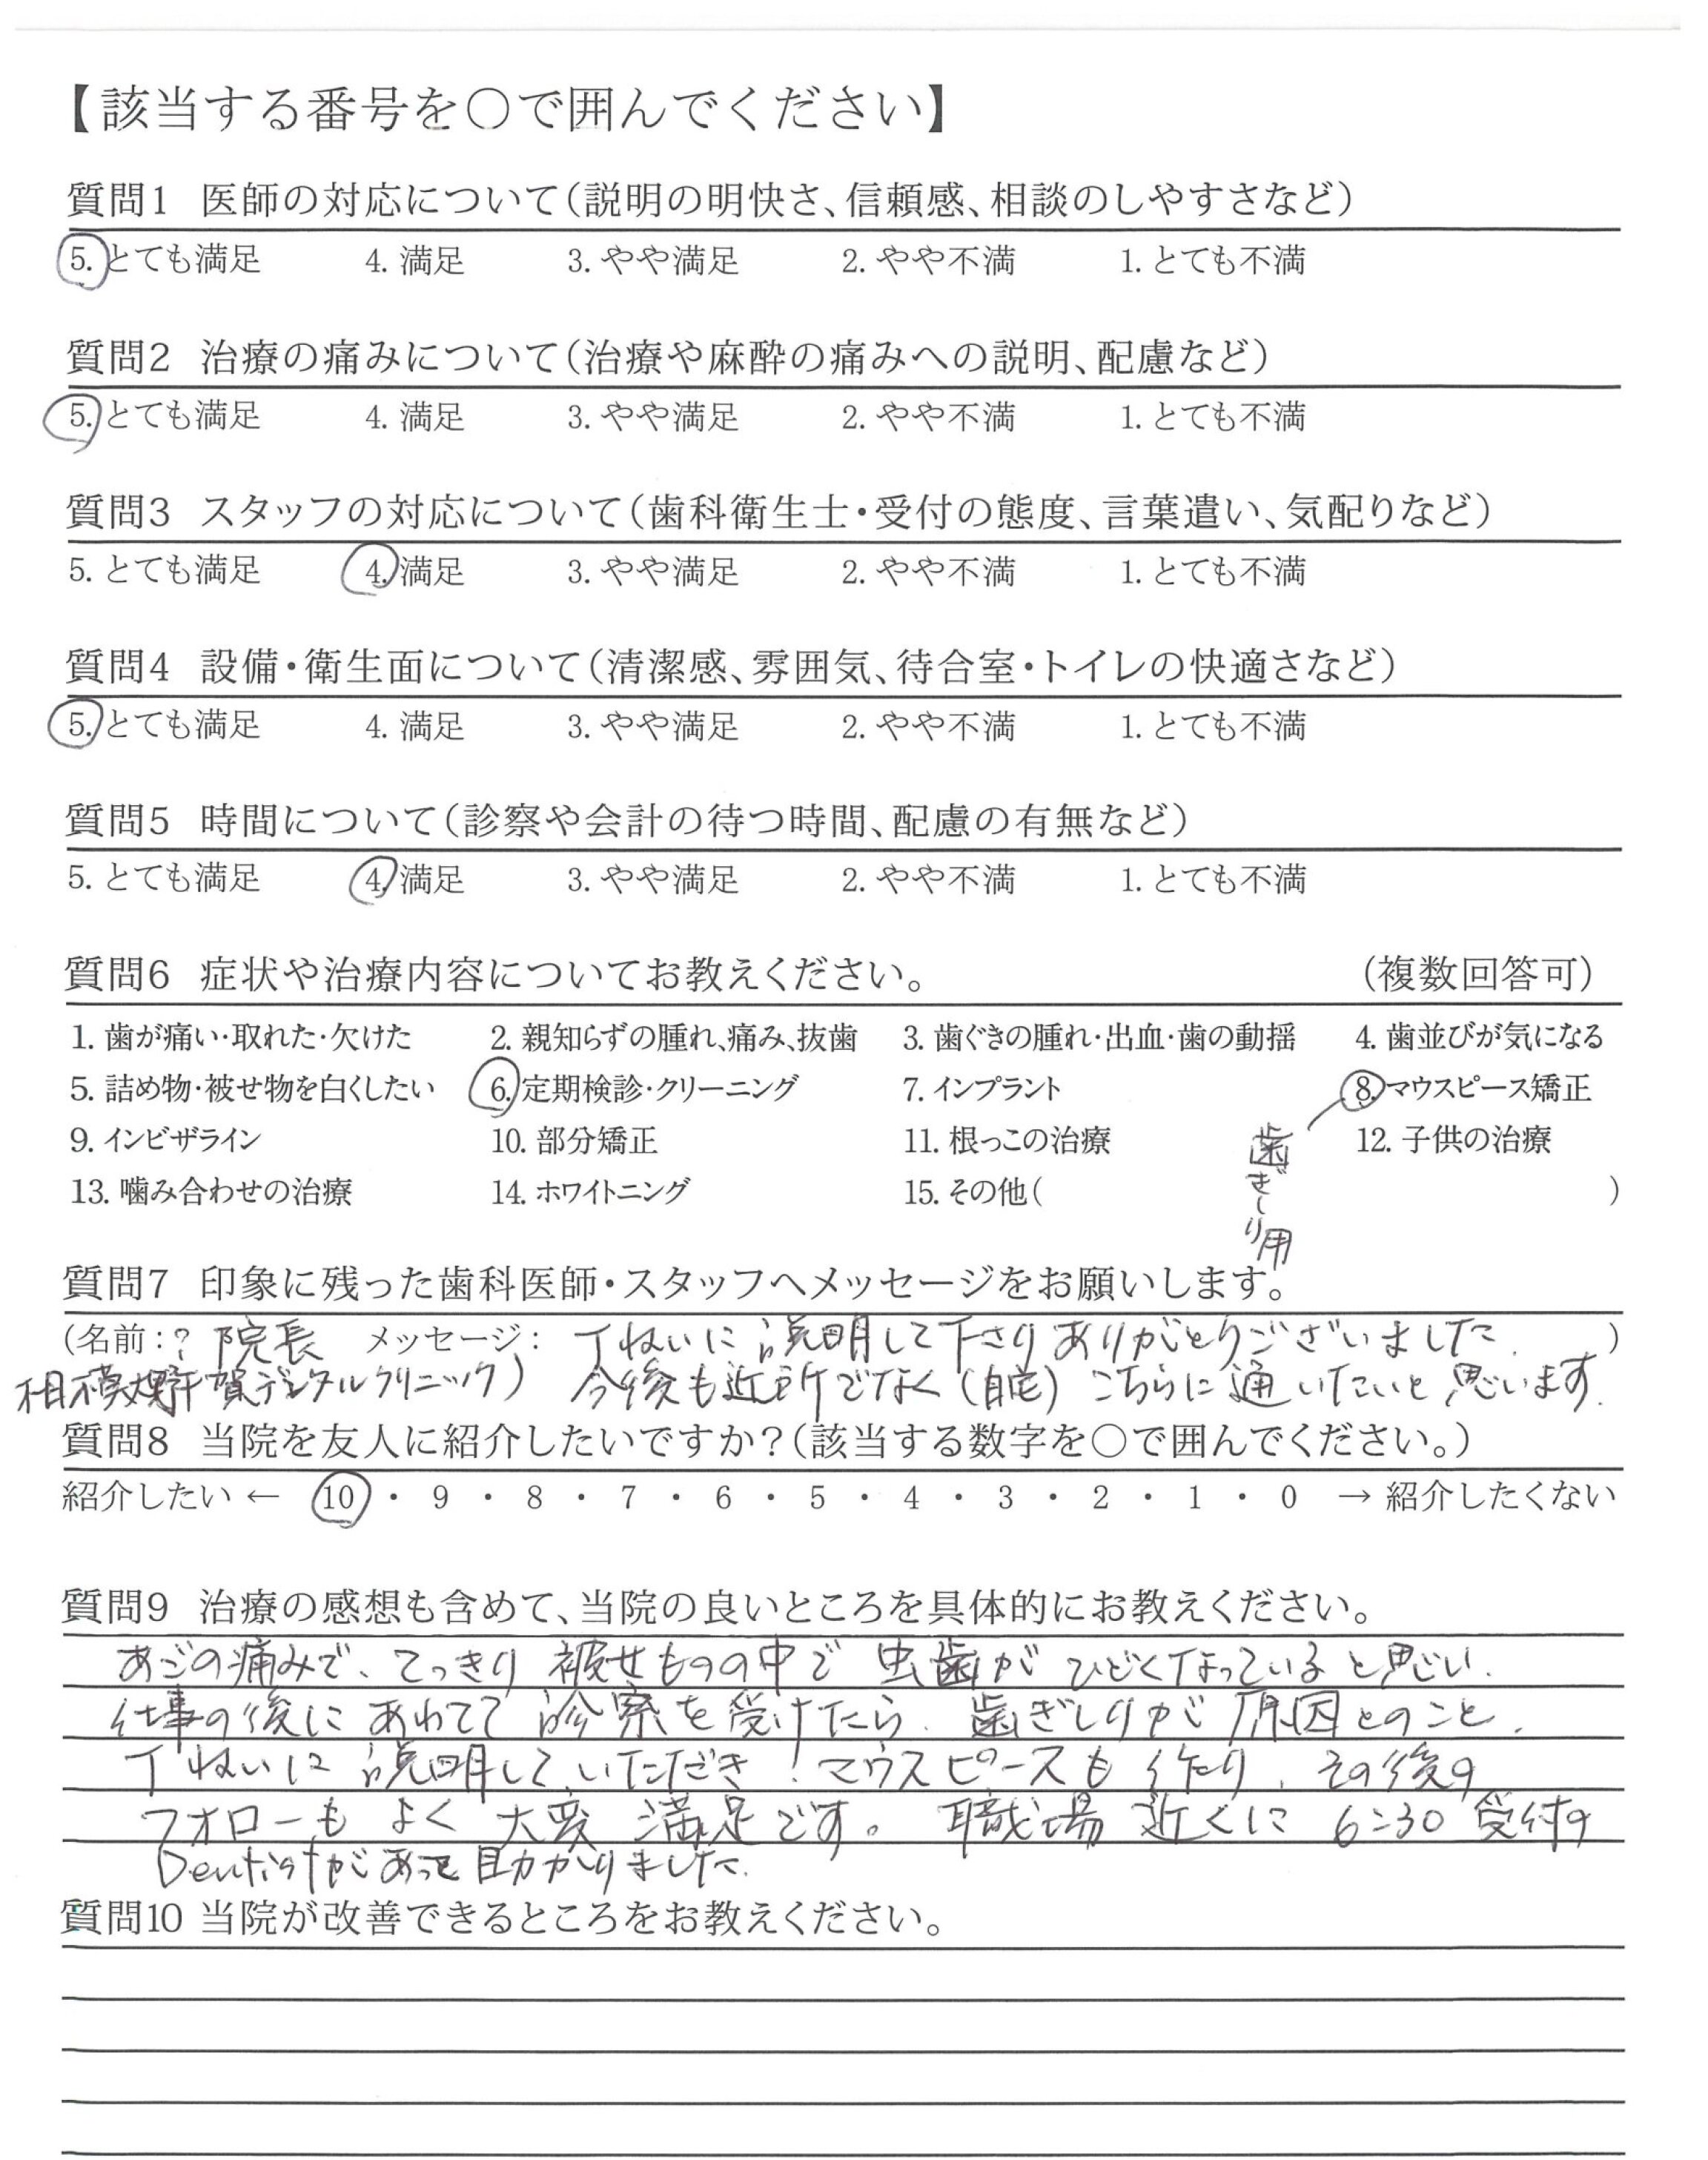 【該当する番号を〇で囲んでください】
質問1 医師の対応について(説明の明快さ、信頼感、相談のしやすさなど)
5. とても満足 4. 満足 3. やや満足 2. やや不満 1. とても不満
質問2 治療の痛みについて(治療や麻酔の痛みへの説明、配慮など)
5. とても満足 4. 満足 3. やや満足 2. やや不満 1. とても不満
質問3 スタッフの対応について(歯科衛生士・受付の態度、言葉遣い、気配りなど)
5. とても満足 4. 満足 3. やや満足 2. やや不満 1. とても不満
質問4 設備・衛生面について(清潔感、雰囲気、待合室・トイレの快適さなど)
5. とても満足 4. 満足 3. やや満足 2. やや不満 1. とても不満
質問5 時間について(診察や会計の待つ時間、配慮の有無など)
5. とても満足 4. 満足 3. やや満足 2. やや不満 1. とても不満
質問6 症状や治療内容についてお教えください。 (複数回答可)
1. 歯が痛い・取れた・欠けた 2. 親知らずの腫れ、痛み、抜歯 3. 歯ぐきの腫れ・出血・歯の動揺 4. 歯並びが気になる
5. 詰め物・被せ物を白くしたい 6. 定期検診・クリーニング 7. インプラント 8. マウスピース矯正
9. インビザライン 10. 部分矯正 11. 根っこの治療 12. 子供の治療
13. 噛み合わせの治療 14. ホワイトニング 15. その他( )
歯ぎしり用
質問7 印象に残った歯科医師・スタッフへメッセージをお願いします。
(名前:? 院長 メッセージ: 丁ねいに説明して下さりありがとうございました. )
相模大野 賀デンタルクリニック) 今後も近所でなく(自宅)こちらに通いたいと思います.
質問8 当院を友人に紹介したいですか?(該当する数字を〇で囲んでください。)
紹介したい ← 10 ・ 9 ・ 8 ・ 7 ・ 6 ・ 5 ・ 4 ・ 3 ・ 2 ・ 1 ・ 0 → 紹介したくない
質問9 治療の感想も含めて、当院の良いところを具体的にお教えください。
あごの痛みで、てっきり被せものの中で虫歯がひどくなっていると思い、
仕事の後にあわてて診察を受けたら、歯ぎしりが原因とのこと。
丁ねいに説明していただき、マウスピースも作り、その後の
フォローもよく大変満足です。職場近くに6:30受付の
Dentistがあって助かりました.
質問10 当院が改善できるところをお教えください。